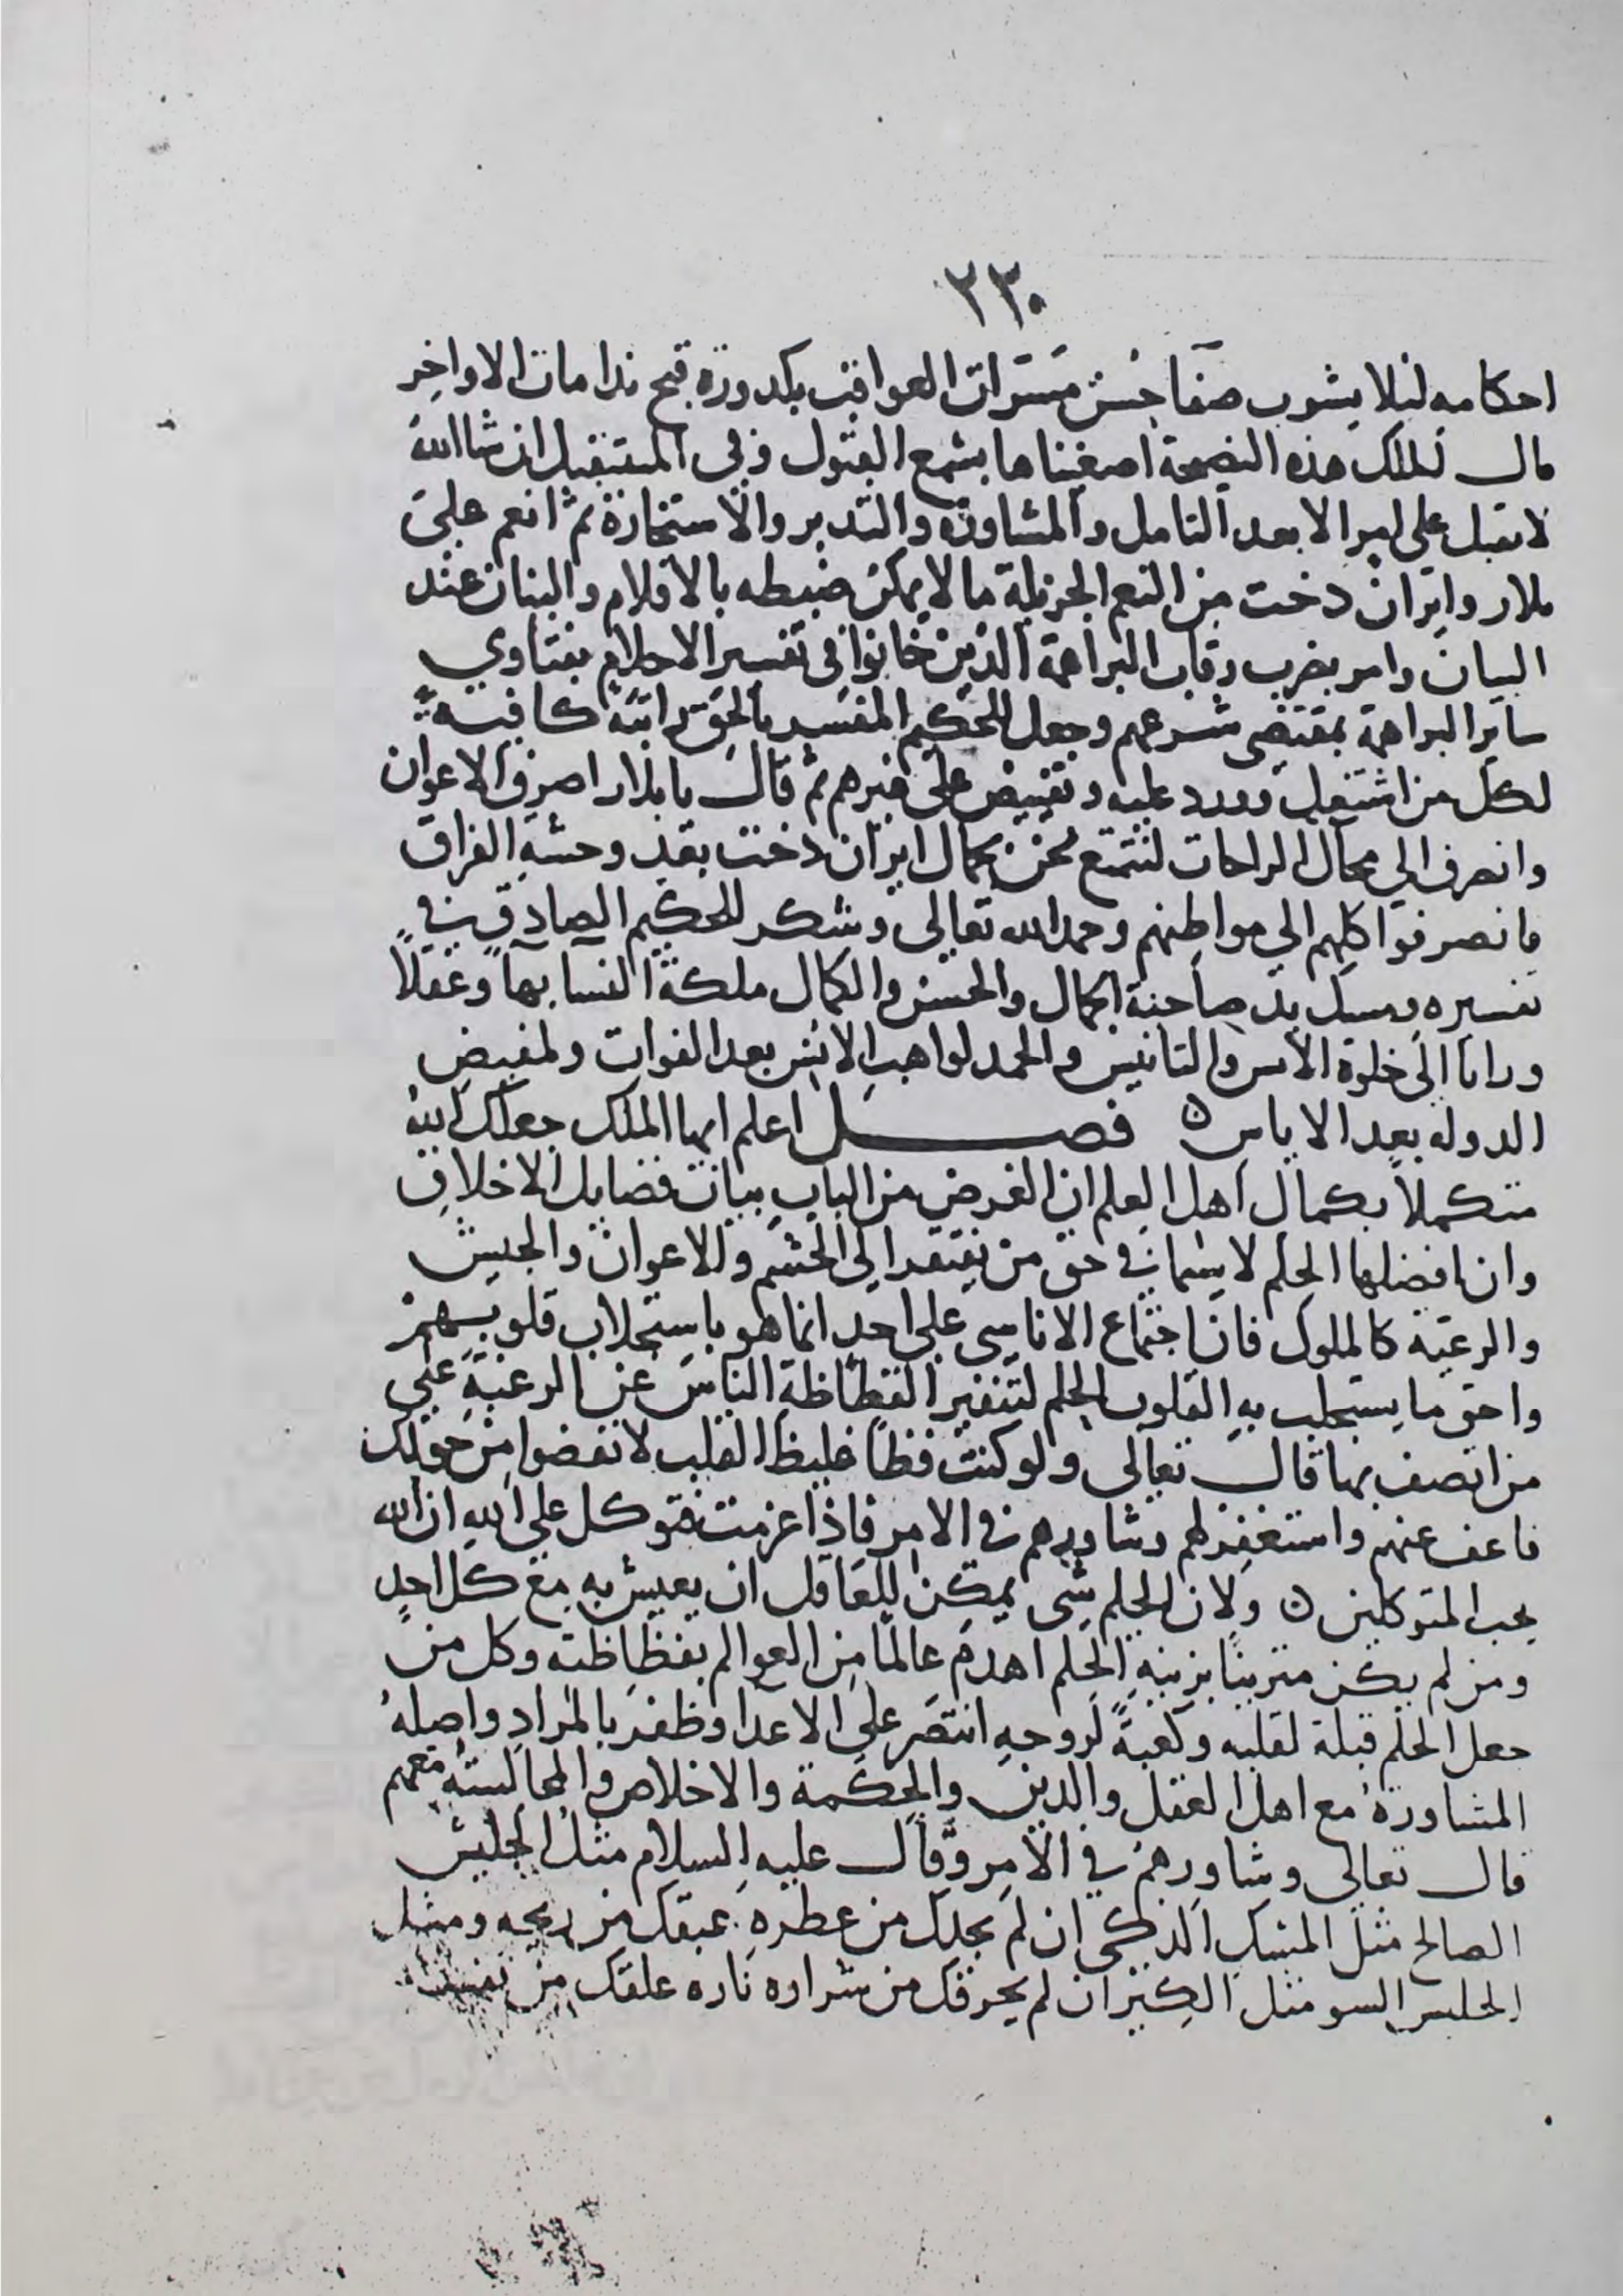 ٢٣٠
احكامه ليلا يشوب صفا حسن مسرات العواقب بكدورة قبح ندامات الاواخر
قال الملك هذه النصيحة اصغيناها بسمع القبول وفي المستقبل ان شا الله
لا نقبل على امر الا بعد التامل والمشاورة والتدبر والاستخارة ثم انعم على
بلار وايران دخت من النعم الجزيلة ما لا يمكن ضبطه بالاقلام والبنان عند
البيان وامر بضرب رقاب البراهمة الذين خانوا في تفسير الاحلام بفتاوي
ساير البراهمة بمقتضى شرعهم وجعل للحكيم المفسر بالحق راتبة كافية
لكل من اشتغل وورد عليه وتفيض على غيرهم ثم قال يا بلار اصرف الاعوان
وانصرف الي محال الراحات لنتمتع نحن بجمال ايران دخت بعد وحشة الفراق
فانصرفوا كلهم الي مواطنهم وحمد الله تعالى وشكر للحكيم الصادق في
تفسيره ومسك يد صاحبة الجمال والحسن والكمال ملكة النسا بها وعقلا
وراما الى خلوة الانس والتانيس والحمد لواهب الانس بعد الفوات ولمفيض
الدوله بعد الاياس ٥ فصل اعلم ايها الملك جعلك الله
متكملا بكمال اهل العلم ان الغرض من الباب بيان فضايل الاخلاق
وان افضلها الحلم لا سيما في حق من يفتقر الى الحشم والاعوان والجيش
والرعية كالملوك فان اجتماع الاناسي على احد انما هو باستجلاب قلوبهم
واحق ما يستجلب به القلوب الحلم لتنفير الفظاظة الناس عن الرغبة على
من اتصف بها قال تعالى ولو كنت فظا غليظ القلب لانفضوا من حولك
فاعف عنهم واستغفر لهم وشاورهم في الامر فاذا عزمت فتوكل على الله ان الله
يحب المتوكلين ٥ ولان الحلم شى يمكن للعاقل ان يعيش به مع كل احد
ومن لم يكن متزينا بزينة الحلم اهدم عالما من العوالم بفظاظته وكل من
جعل الحلم قبلة لقلبه وكعبة لروحه انتصر على الاعدا وظفر بالمراد واصله
المشاورة مع اهل العقل والدين والحكمة والاخلاص والمجالسة معهم
قال تعالى وشاورهم في الامر وقال عليه السلام مثل الجليس
الصالح مثل المسك الذكى ان لم يجدك من عطره عبقك من ريحه ومثل
الجليس السو مثل الكير ان لم يحرقك من شراره ناره علقك من